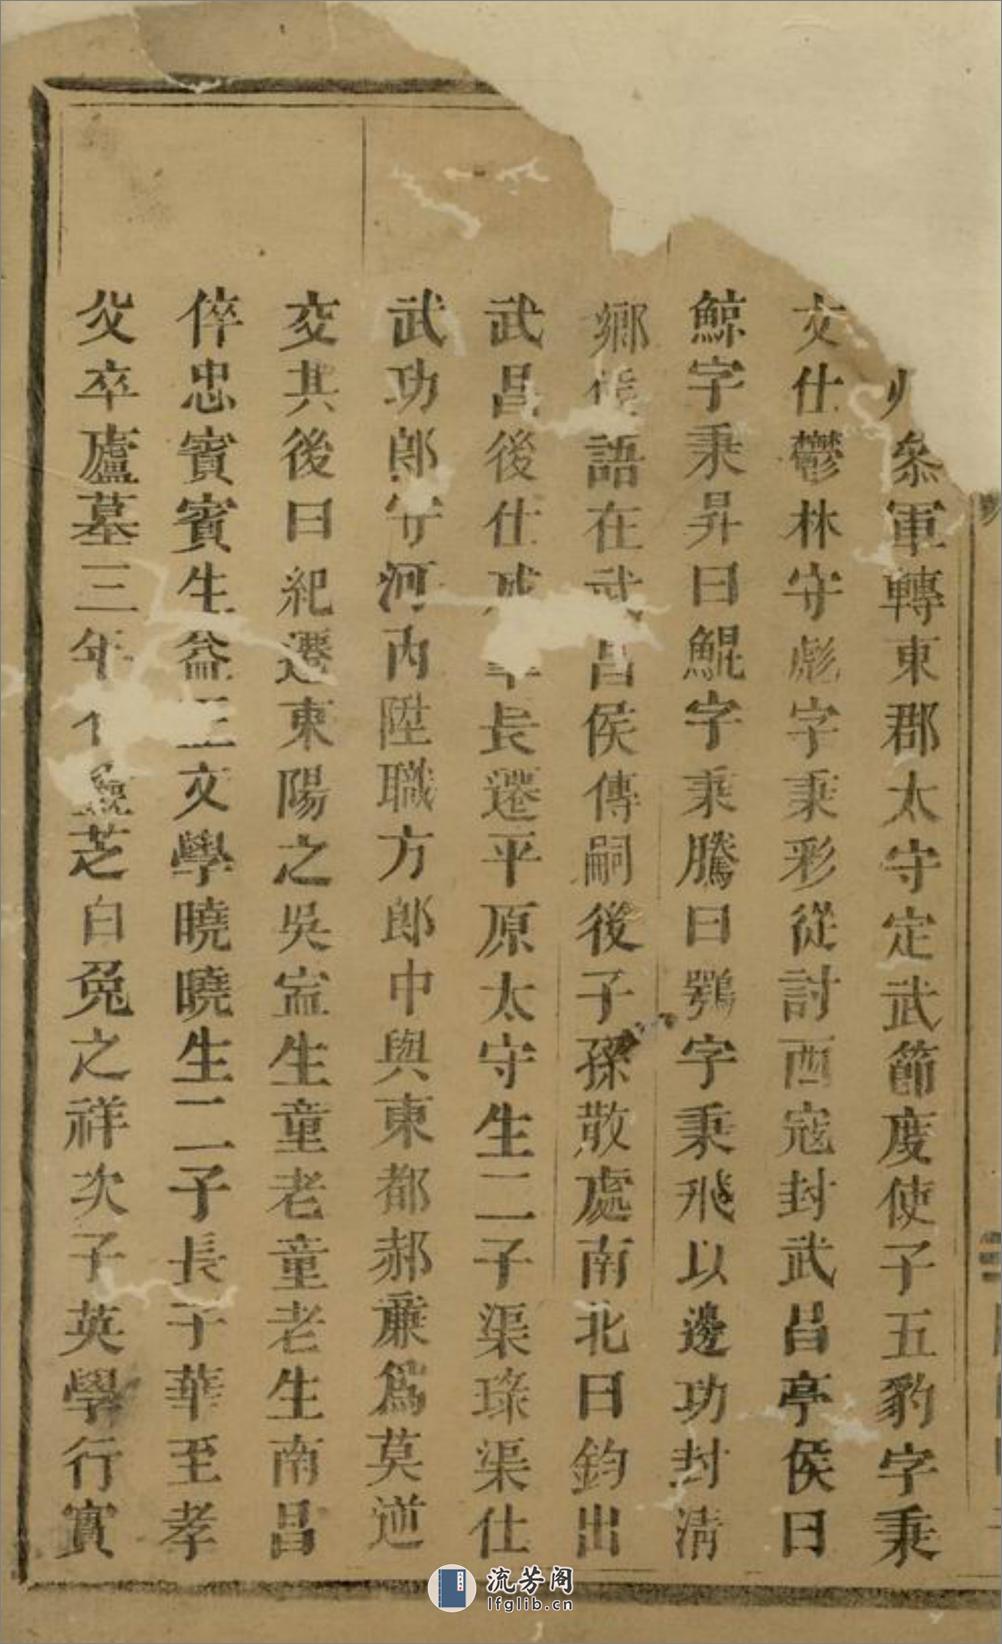 叅軍轉東郡太守定武節度使子五豹字秉
文仕鬱林守彪字秉彩從討西寇封武昌亭侯曰
鯨字秉昇曰鯤字秉騰曰鶚字秉飛以邊功封清
鄉侯語在武昌侯傳嗣後子孫散處南北曰鈞出
武昌後仕長遷平原太守生二子渠琭渠仕
武功郎守河內陞職方郎中與東都郝亷爲莫逆
交其後曰紀遷東陽之吳寍生童老童老生南昌
倅忠賓賓生益三文學曉曉生二子長子華至孝
父卒廬墓三年芝白兔之祥次子英學行實
流芳阁
lfglib.cn